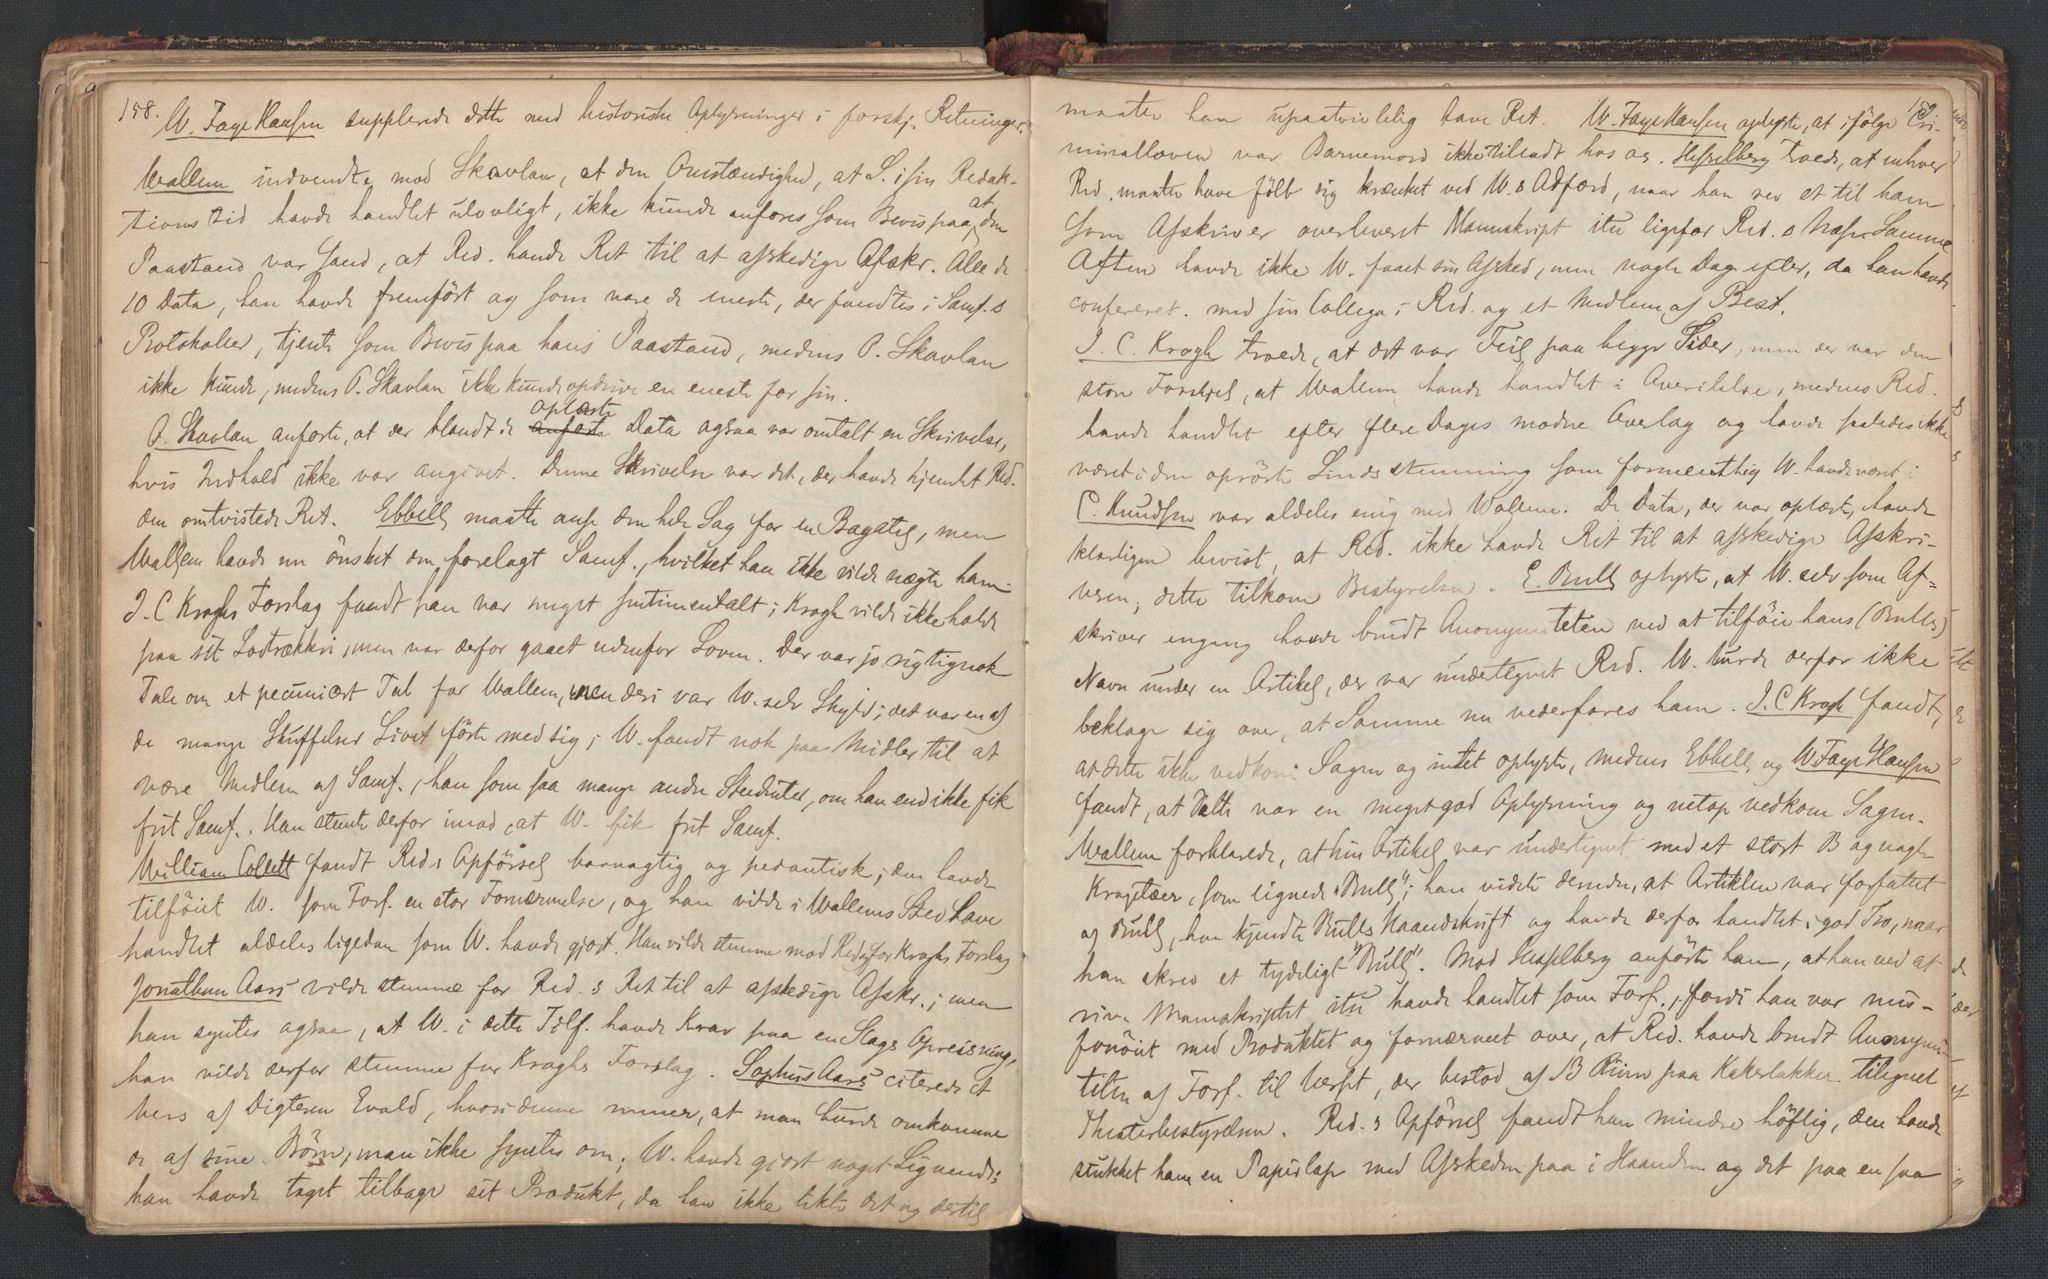 158. W. Faye Hansen supplerede dette med historiske Oplysninger i forskj. Retninger.
Wallem indvendte mod Skavlan, at den Omstændighed, at S. i sin Redak-
tionstid havde handlet ulovligt, ikke kunde anføres som Bevis paa, at den
Paastand var sand, at Red. havde Ret til at afskedige Afskr. Alle de
10 Data, han havde fremført og som vare de eneste, der fandtes i Samf.s
Protokoller, tjente som Bevis paa hans Paastand, medens O. Skavlan
ikke kunde, medens O. Skavlan ikke kunde opdrive en eneste for sin.
O. Skavlan anførte, at der blandt de anførte oplæste Data ogsaa var omtalt en Skrivelse,
hvis Indhold ikke var angivet. Denne Skrivelse var det, der havde hjemlet Red.
den omtvistede Ret. Ebbell maatte anse den hele Sag for en Bagatel, men
Wallem havde nu ønsket den forelagt Samf., hvilket han ikke vilde nægte ham.
J. C. Kroghs Forslag fandt han var meget sentimentalt; Krogh vilde ikke holde
paa sit Lodtrækkeri, men var derfor gaaet udenfor Loven. Der var jo rigtignok
Tale om et pecuniært Tab for Wallem, men deri var W. selv Skyld; det var en af
de mange Skuffelser Livet førte med sig; W. fandt nok paa Midler til at
være Medlem af Samf., han som saa mange andre Studenter, om han end ikke fik
frit Samf. Han stemte derfor imod, at W. fik frit Samf.
William Collett fandt Reds Opførsel barnagtig og pedantisk; den havde
tilføiet W. som Forf. en stor Fornærmelse, og han vilde i Wallems Sted have
handlet aldeles ligedan som W. havde gjort. Han vilde stemme mod Red. og for Kroghs Forslag
Jonathan Aars vilde stemme for Red.s Ret til at afskedige Afskr.; men
han syntes ogsaa, at W. i dette Tilf. havde Krav paa en Slags Opreisning,
han vilde derfor stemme for Kroghs Forslag. Sophus Aars citerede et
Vers af Digteren Evald, hvori denne mener, at man burde omkomme
de af sine Børn, man ikke syntes om; W. havde gjort noget Lignende;
han havde taget tilbage sit Produkt, da han ikke likte det og dertil
159
maatte han upaatvivlelig have Ret. W. Faye Hansen oplyste, at ifølge Cri-
minalloven var Barnemord ikke tilladt hos os. Hesselberg troede, at enhver
Red. maatte have følt sig krænket ved W.s Adfærd, naar han rev et til ham
som Afskriver overleveret Manuskript itu ligefor Red.s Næse. Samme
Aften havde ikke W. faaet sin Afsked, men nogle Dage efter, da han havde
confereret med sin Collega i Red. og et Medlem af Best.
J. C. Krogh troede, at det var Feil paa begge Sider, men der var den
store Forskjel, at Wallem havde handlet i Overilelse, medens Red.
havde handlet efter flere Dages modne Overlæg og havde saaledes ikke
været i den oprørte Sindsstemning som formentlig W. havde været i.
C. Knudsen var aldeles enig med Wallem. De Data, der var oplæst, havde
klarligen bevist, at Red. ikke havde Ret til at afskedige Afskri-
veren; dette tilkom Bestyrelsen. E. Bull oplyste, at W. selv som Af-
skriver engang havde brudt Anonymiteten ved at tilføie hans (Bulls)
Navn under en Artikel, der var undertegnet Red. W. burde derfor ikke
beklage sig over, at Samme nu vederfares ham. J. C. Krogh fandt,
at dette ikke vedkom Sagen og intet oplyste, medens Ebbell og W. Faye Hansen
fandt, at dette var en meget god Oplysning og netop vedkom Sagen.
Wallem forklarede, at hin Artikel var undertegnet med et stort B og nogle
Kragetæer, som lignede "Bull"; han vidste desuden, at Artiklen var forfattet
af Bull, han kjendte Bulls Haandskrift og havde derfor handlet i god Tro, naar
han skrev et tydeligt "Bull". Mod Hesselberg anførte han, at han ved at
rive Manuskriptet itu havde handlet som Forf., fordi han var mis-
fornøiet med Produktet og fornærmet over, at Red. havde brudt Anonymi-
teten af Forf. til Verset, der bestod af 13 Rim paa Kakerlakker tilegnet
Theaterbestyrelsen. Red.s Opførsel fandt han mindre høflig, den havde
stukket ham en Papirlap med Afskeden paa i Haanden og det paa en saa